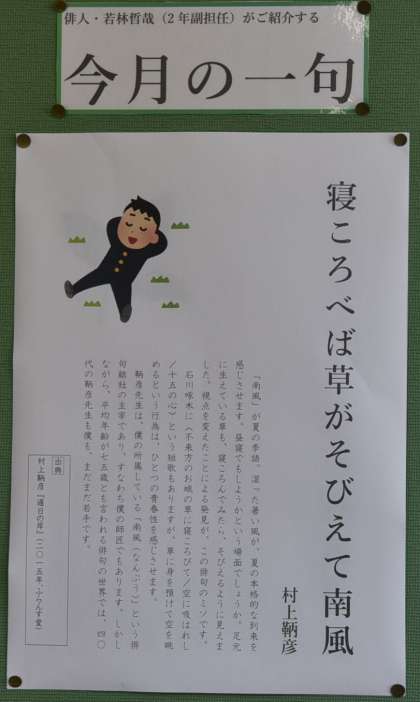 俳人・若林哲哉（2年副担任）がご紹介する
今月の一句
寝ころべば草がそびえて南風
村上鞆彦
「南風」が夏の季語。湿った暑い風が、夏の本格的な到来を
感じさせます。昼寝でもしようかという場面でしょうか、足元
に生えている草も、寝ころんでみたら、そびえるように見えま
した。視点を変えたことによる発見が、この俳句のミソです。
石川啄木に〈不来方のお城の草に寝ころびて／空に吸はれし
／十五の心〉という短歌もありますが、草に身を預けて空を眺
めるという行為は、ひとつの青春性を感じさせます。
鞆彦先生は、僕の所属している「南風（なんぷう）」という俳
句結社の主宰であり、すなわち僕の師匠でもあります。しかし
ながら、平均年齢が七五歳とも言われる俳句の世界では、四〇
代の鞆彦先生も僕も、まだまだ若手です。
出典
村上鞆彦『遅日の岸』（二〇一五年・ふらんす堂）